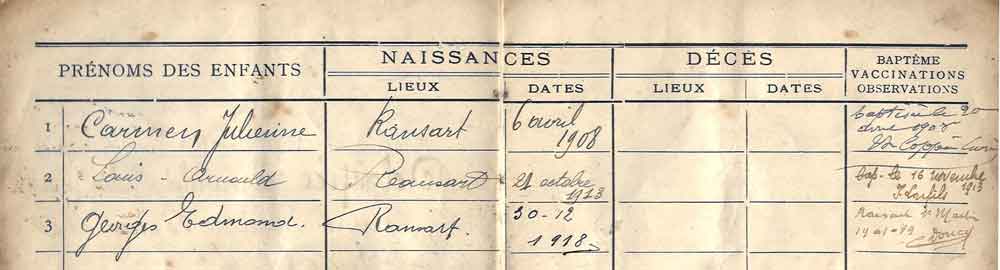 PRÉNOMS DES ENFANTS
NAISSANCES
DÉCÈS
BAPTÊME
VACCINATIONS
OBSERVATIONS
LIEUX DATES
LIEUX DATES
1 Carmen Julienne Ransart 6 avril
1908
baptisée le 20
avril 1908
Coppin Curé
2 Louis - Arnould Ransart 21 octobre
1913
Bap. le 16 novembre
1913
3 Georges Edmond. Ransart. 30-12
1918
Ransart St